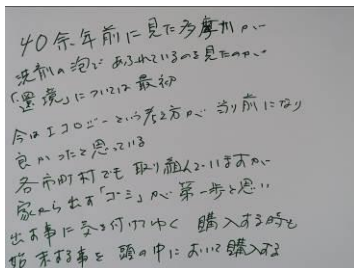 40余年前に見た多摩川が
洗剤の泡であふれているのを見たのが
「環境」については最初
今はエコロジーという考え方が当り前になり
良かったと思っている
各市町村でも取り組んでいますが
家から出す「ゴミ」が第一歩と思い
出す事に気を付けてゆく 購入する時も
始末する事を頭の中において購入する